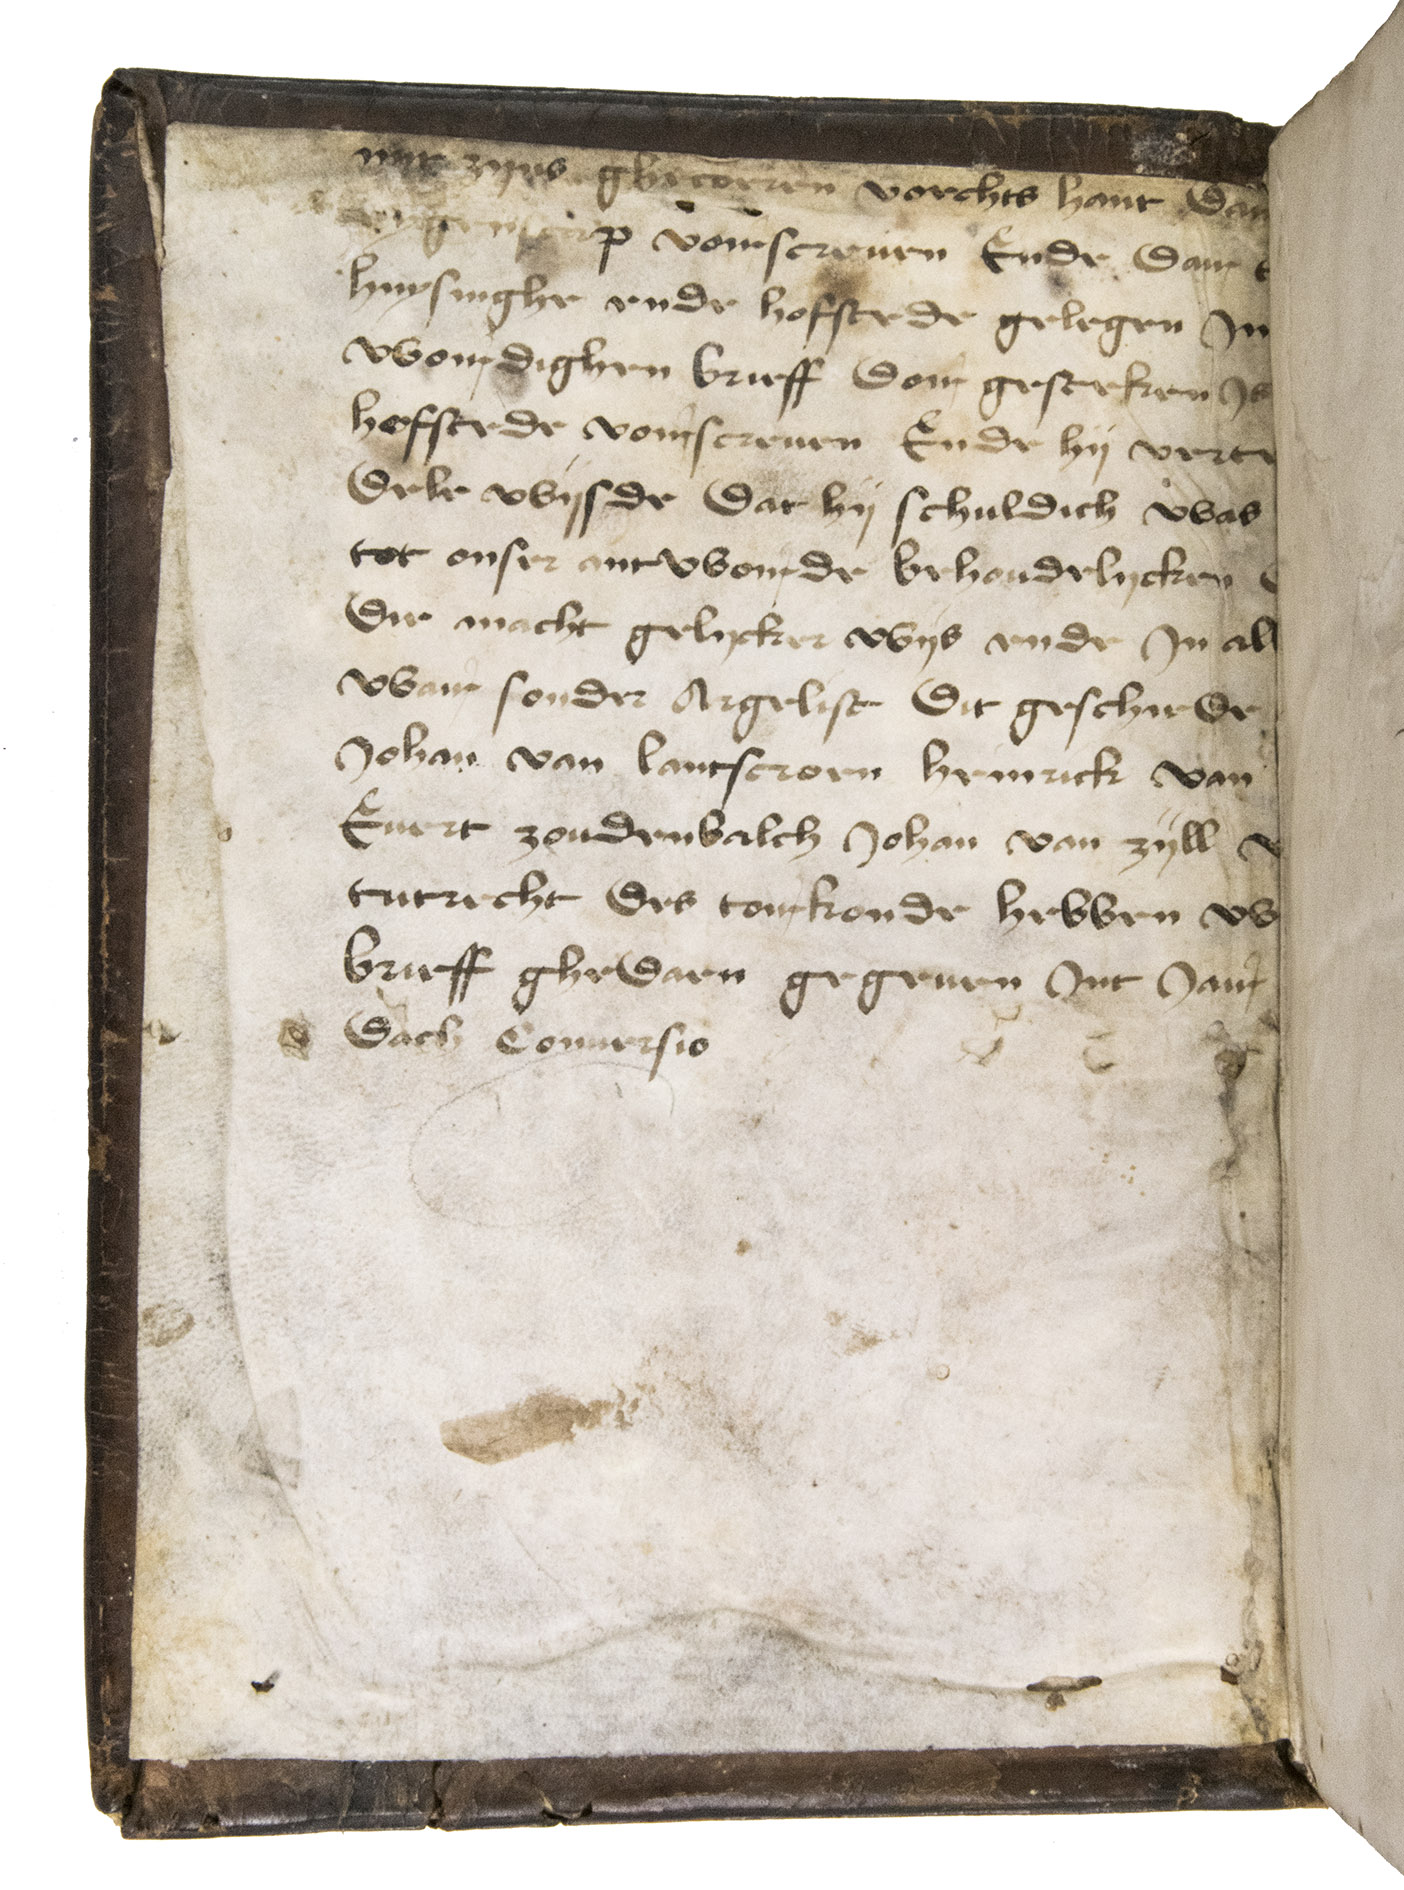 mit zijns ghecoeren voechts hant Dair
p voirscreuen Ende Dair
huysinghe ende hofstede gelegen In
woirdighen brieff Doir gesteken Is
hofstede voirscreuen Ende hij verte
Dele wijsde Dat hij schuldich was
tot onser antwoirde behoudelijcken
Die macht gelijcker wijs ende In al
wair sonder Argelist Dit geschiede
Johan van lantscroen heinrick van
Euert zoudenbalch Johan van zijll
tutrecht Des toirkonde hebben
brieff ghedaen gegeuen Int Jair
Dach Conuersio